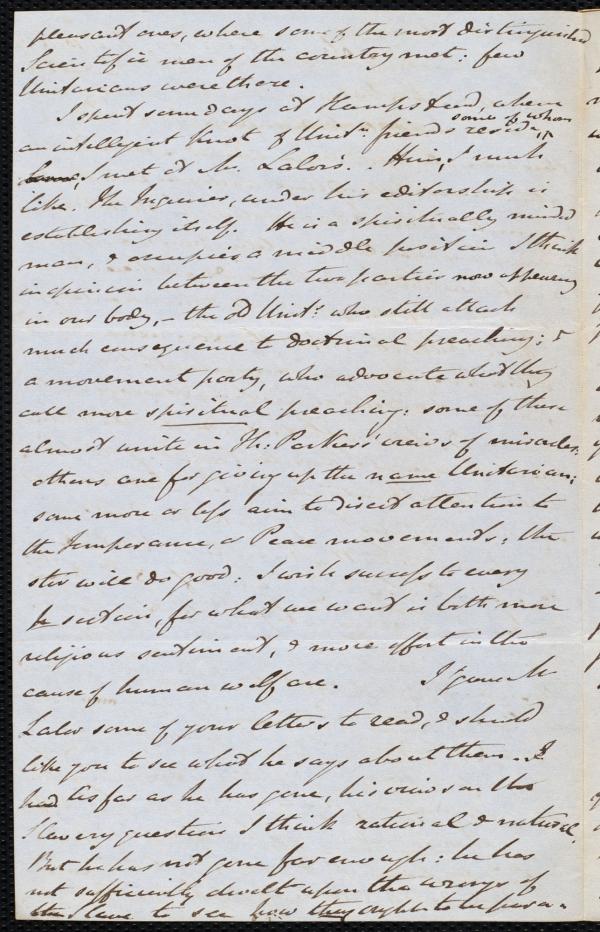 pleasant ones, where some of the most distinguished
Scientific men of the country met: few
Unitarians were there.
I spent some days at Hampstead, where
an intelligent knot of Unitn friends reside, some of whom
I met at Mr. Lalor's. Him, I much
like. The Inquirer, under his editorship is
establishing itself. He is a spiritually minded
man, & occupies a middle position I think
in opinion between the two parties now appearing
in our body, – the old Units. who still attach
much consequence to doctrinal preaching; &
a movement party, who advocate what they
call more spiritual preaching: some of these
almost unite in Th. Parker's views of miracles:
others are for giving up the name Unitarian;
some more or less aim to direct attention to
the Temperance, or Peace movements; the
stir will do good: I wish success to every
section, for what we want is both more
religious sentiment, & more effort in the
cause of human welfare. I gave Mr
Lalor some of your letters to read, & should
like you to see what he says about them.
As far as he has gone, his views on the
Slavery question I think rational & natural.
But he has not gone far enough: he has
not sufficiently dwelt upon the wrongs of
the Slave to see how they ought to